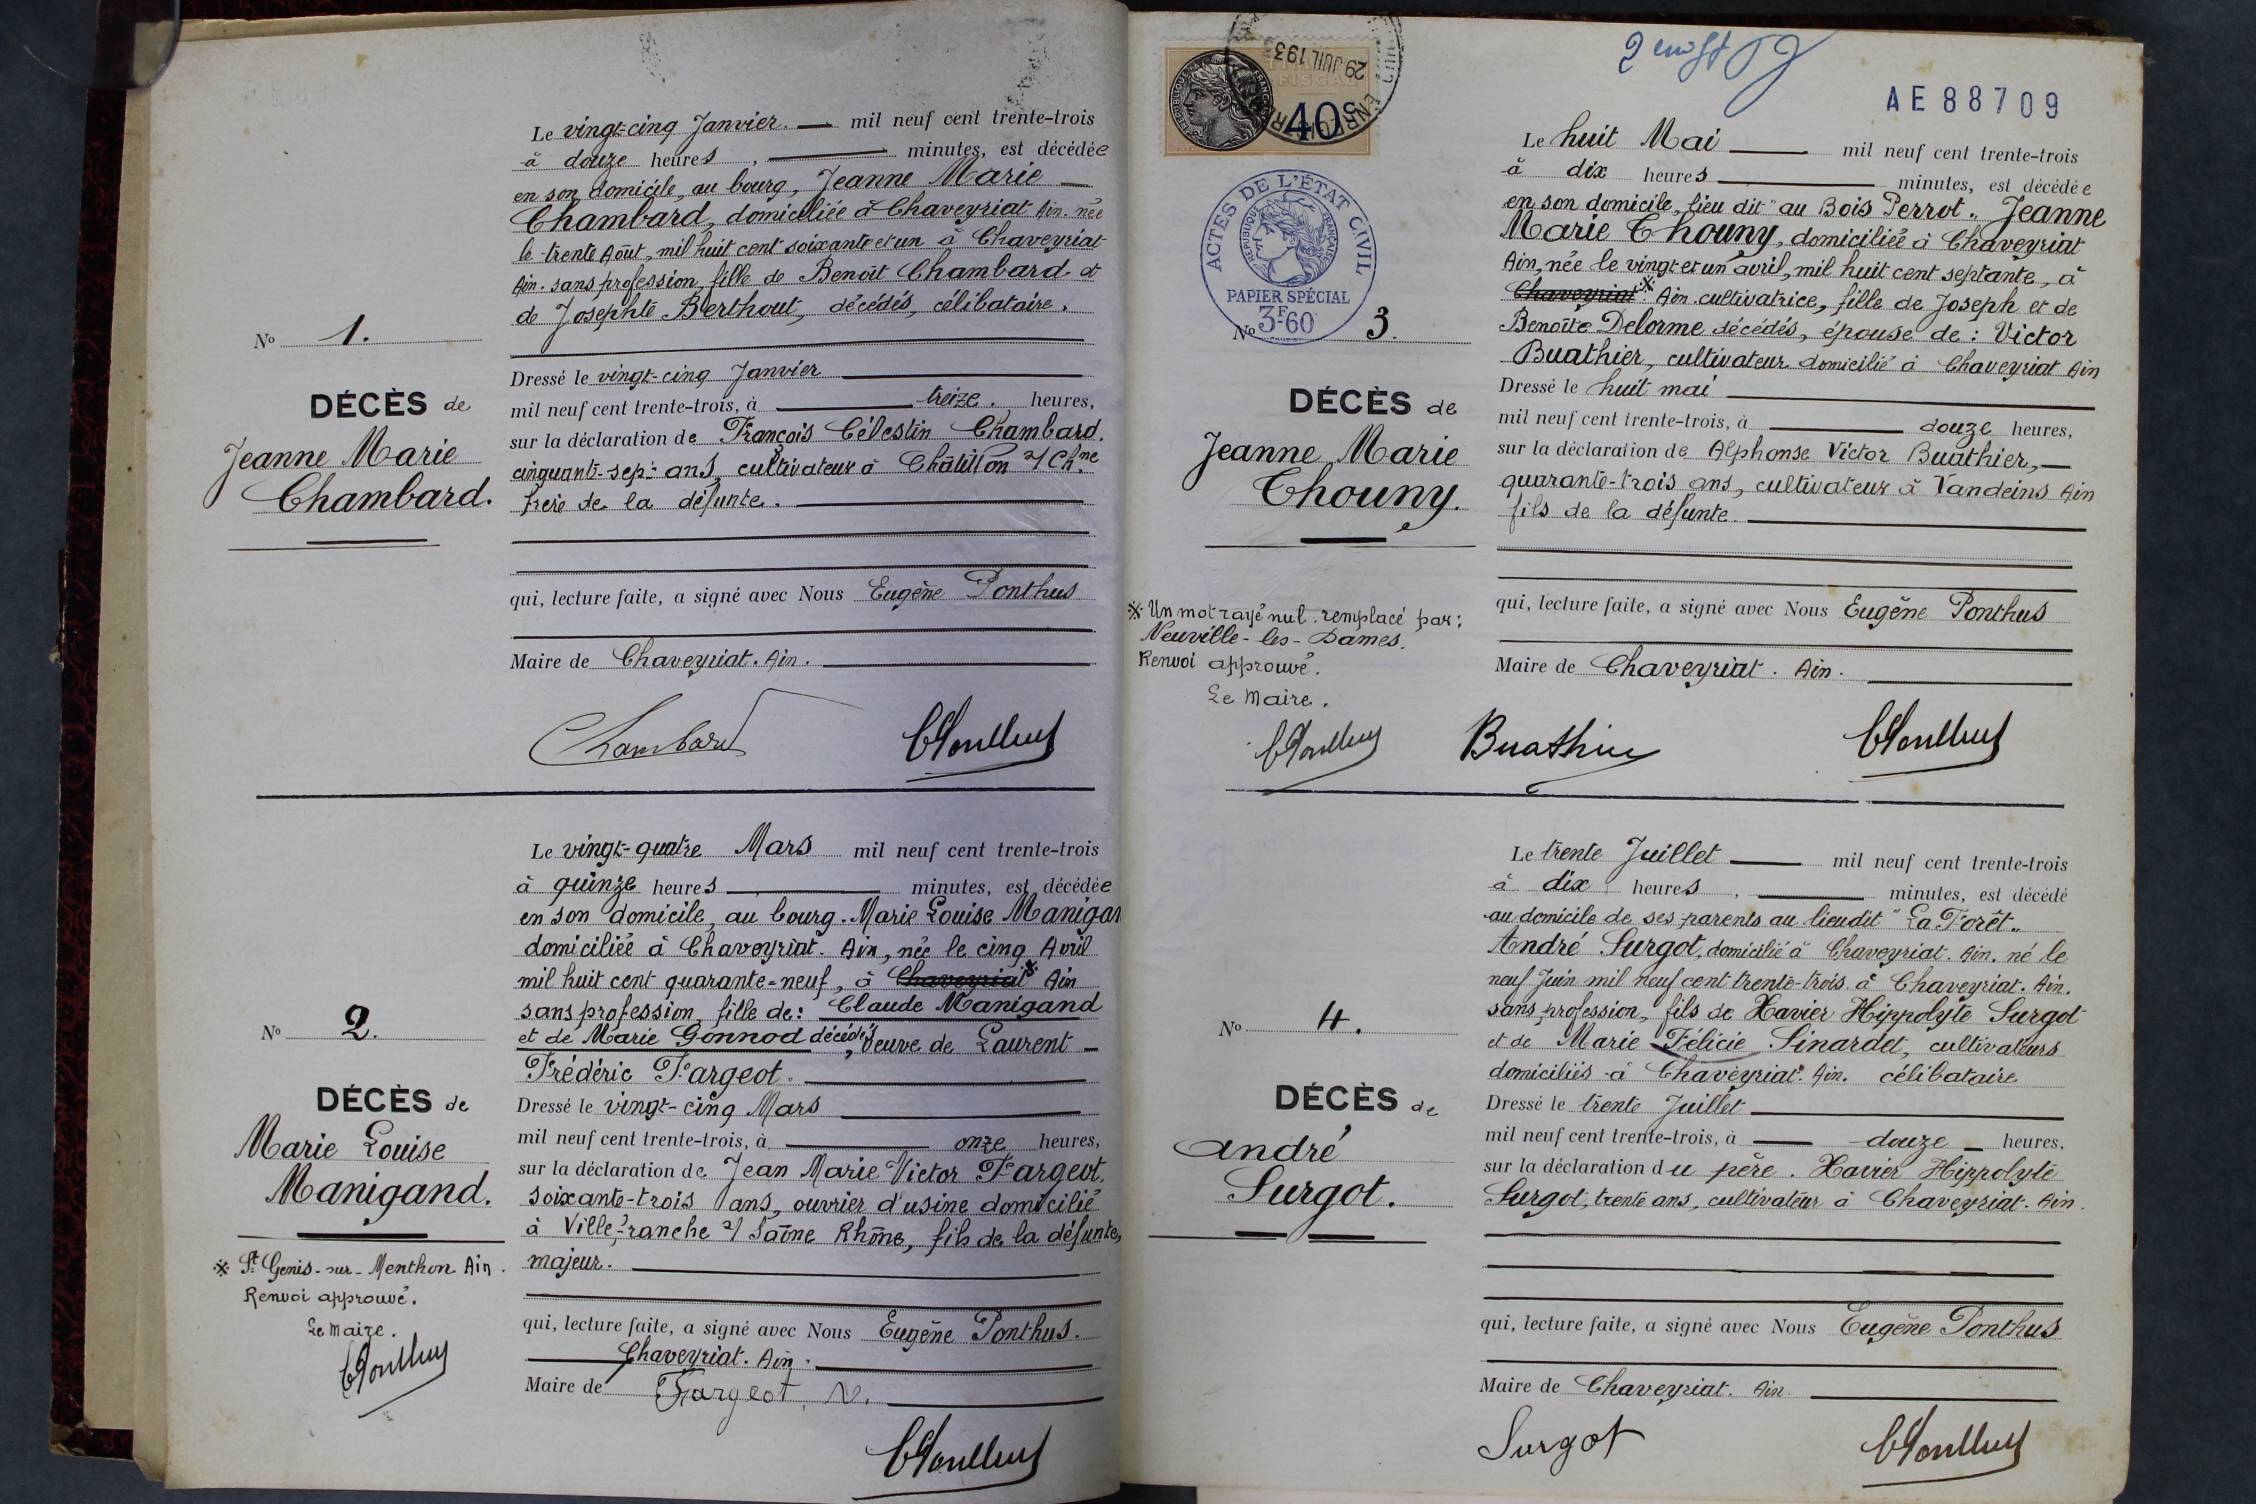 Le vingt-cinq Janvier. mil neuf cent trente-trois
à douze heures, minutes, est décédée
en son domicile, au bourg, Jeanne Marie
Chambard, domiciliée à Chaveyriat Ain. née
le trente Août, mil huit cent soixante et un à Chaveyriat
Ain. sans profession, fille de Benoît Chambard et
de Josephte Berthout, décédés, célibataire.
No 1.
DÉCÈS de
Jeanne Marie
Chambard.
Dressé le vingt-cinq Janvier
mil neuf cent trente-trois, à treize. heures,
sur la déclaration de François Célestin Chambard.
cinquante-sept ans, cultivateur à Châtillon s/ Chne
frère de la défunte.
qui, lecture faite, a signé avec Nous Eugène Ponthus
Maire de Chaveyriat. Ain.
Chambard
EPonthus
Le vingt-quatre Mars mil neuf cent trente-trois
à quinze heures minutes, est décédée
en son domicile, au bourg. Marie Louise Manigan
domiciliée à Chaveyriat. Ain, née le cinq Avril
mil huit cent quarante-neuf, à Chaveyriat※ Ain
sans profession, fille de: Claude Manigand
et de Marie Gonnod décédés, veuve de Laurent
Frédéric Fargeot.
No 2.
DÉCÈS de
Marie Louise
Manigand.
※ St Genis-sur-Menthon Ain.
Renvoi approuvé.
Le Maire.
EPonthus
Dressé le vingt-cinq Mars
mil neuf cent trente-trois, à onze heures,
sur la déclaration de Jean Marie Victor Fargeot.
soixante-trois ans, ouvrier d'usine domicilié
à Villefranche s/ Saône Rhône, fils de la défunte,
majeur.
qui, lecture faite, a signé avec Nous Eugène Ponthus.
Chaveyriat. Ain.
Maire de
Fargeot, V.
EPonthus
29 JUIL 193
FISCAL
40
2 AE88709
ACTES DE L'ÉTAT CIVIL
RÉPUBLIQUE FRANÇAISE
PAPIER SPÉCIAL
3F60
Le huit Mai mil neuf cent trente-trois
à dix heures minutes, est décédée
en son domicile, lieu dit "au Bois Perrot". Jeanne
Marie Chouny, domiciliée à Chaveyriat
Ain, née le vingt et un avril, mil huit cent septante, à
Chaveyriat※ Ain. cultivatrice, fille de Joseph et de
Benoîte Delorme décédés, épouse de: Victor
Buathier, cultivateur domicilié à Chaveyriat Ain
No 3.
DÉCÈS de
Jeanne Marie
Chouny.
※ Un mot rayé nul. remplacé par:
Neuville-les-Dames.
Renvoi approuvé.
Le Maire.
EPonthus
Dressé le huit mai
mil neuf cent trente-trois, à douze heures,
sur la déclaration de Alphonse Victor Buathier,
quarante-trois ans, cultivateur à Vandeins Ain
fils de la défunte
qui, lecture faite, a signé avec Nous Eugène Ponthus
Maire de Chaveyriat. Ain.
Buathier
EPonthus
Le trente Juillet mil neuf cent trente-trois
à dix heures, minutes, est décédé
au domicile de ses parents au lieudit "La Forêt"
André Surgot, domicilié à Chaveyriat. Ain. né le
neuf Juin mil neuf cent trente-trois à Chaveyriat. Ain.
sans profession, fils de Xavier Hippolyte Surgot
et de Marie Félicie Sinardet, cultivateurs
domiciliés à Chaveyriat. Ain. célibataire
No 4.
DÉCÈS de
André
Surgot.
Dressé le trente Juillet
mil neuf cent trente-trois, à douze heures,
sur la déclaration du père. Xavier Hippolyte
Surgot, trente ans, cultivateur à Chaveyriat. Ain.
qui, lecture faite, a signé avec Nous Eugène Ponthus
Maire de Chaveyriat. Ain
Surgot
EPonthus